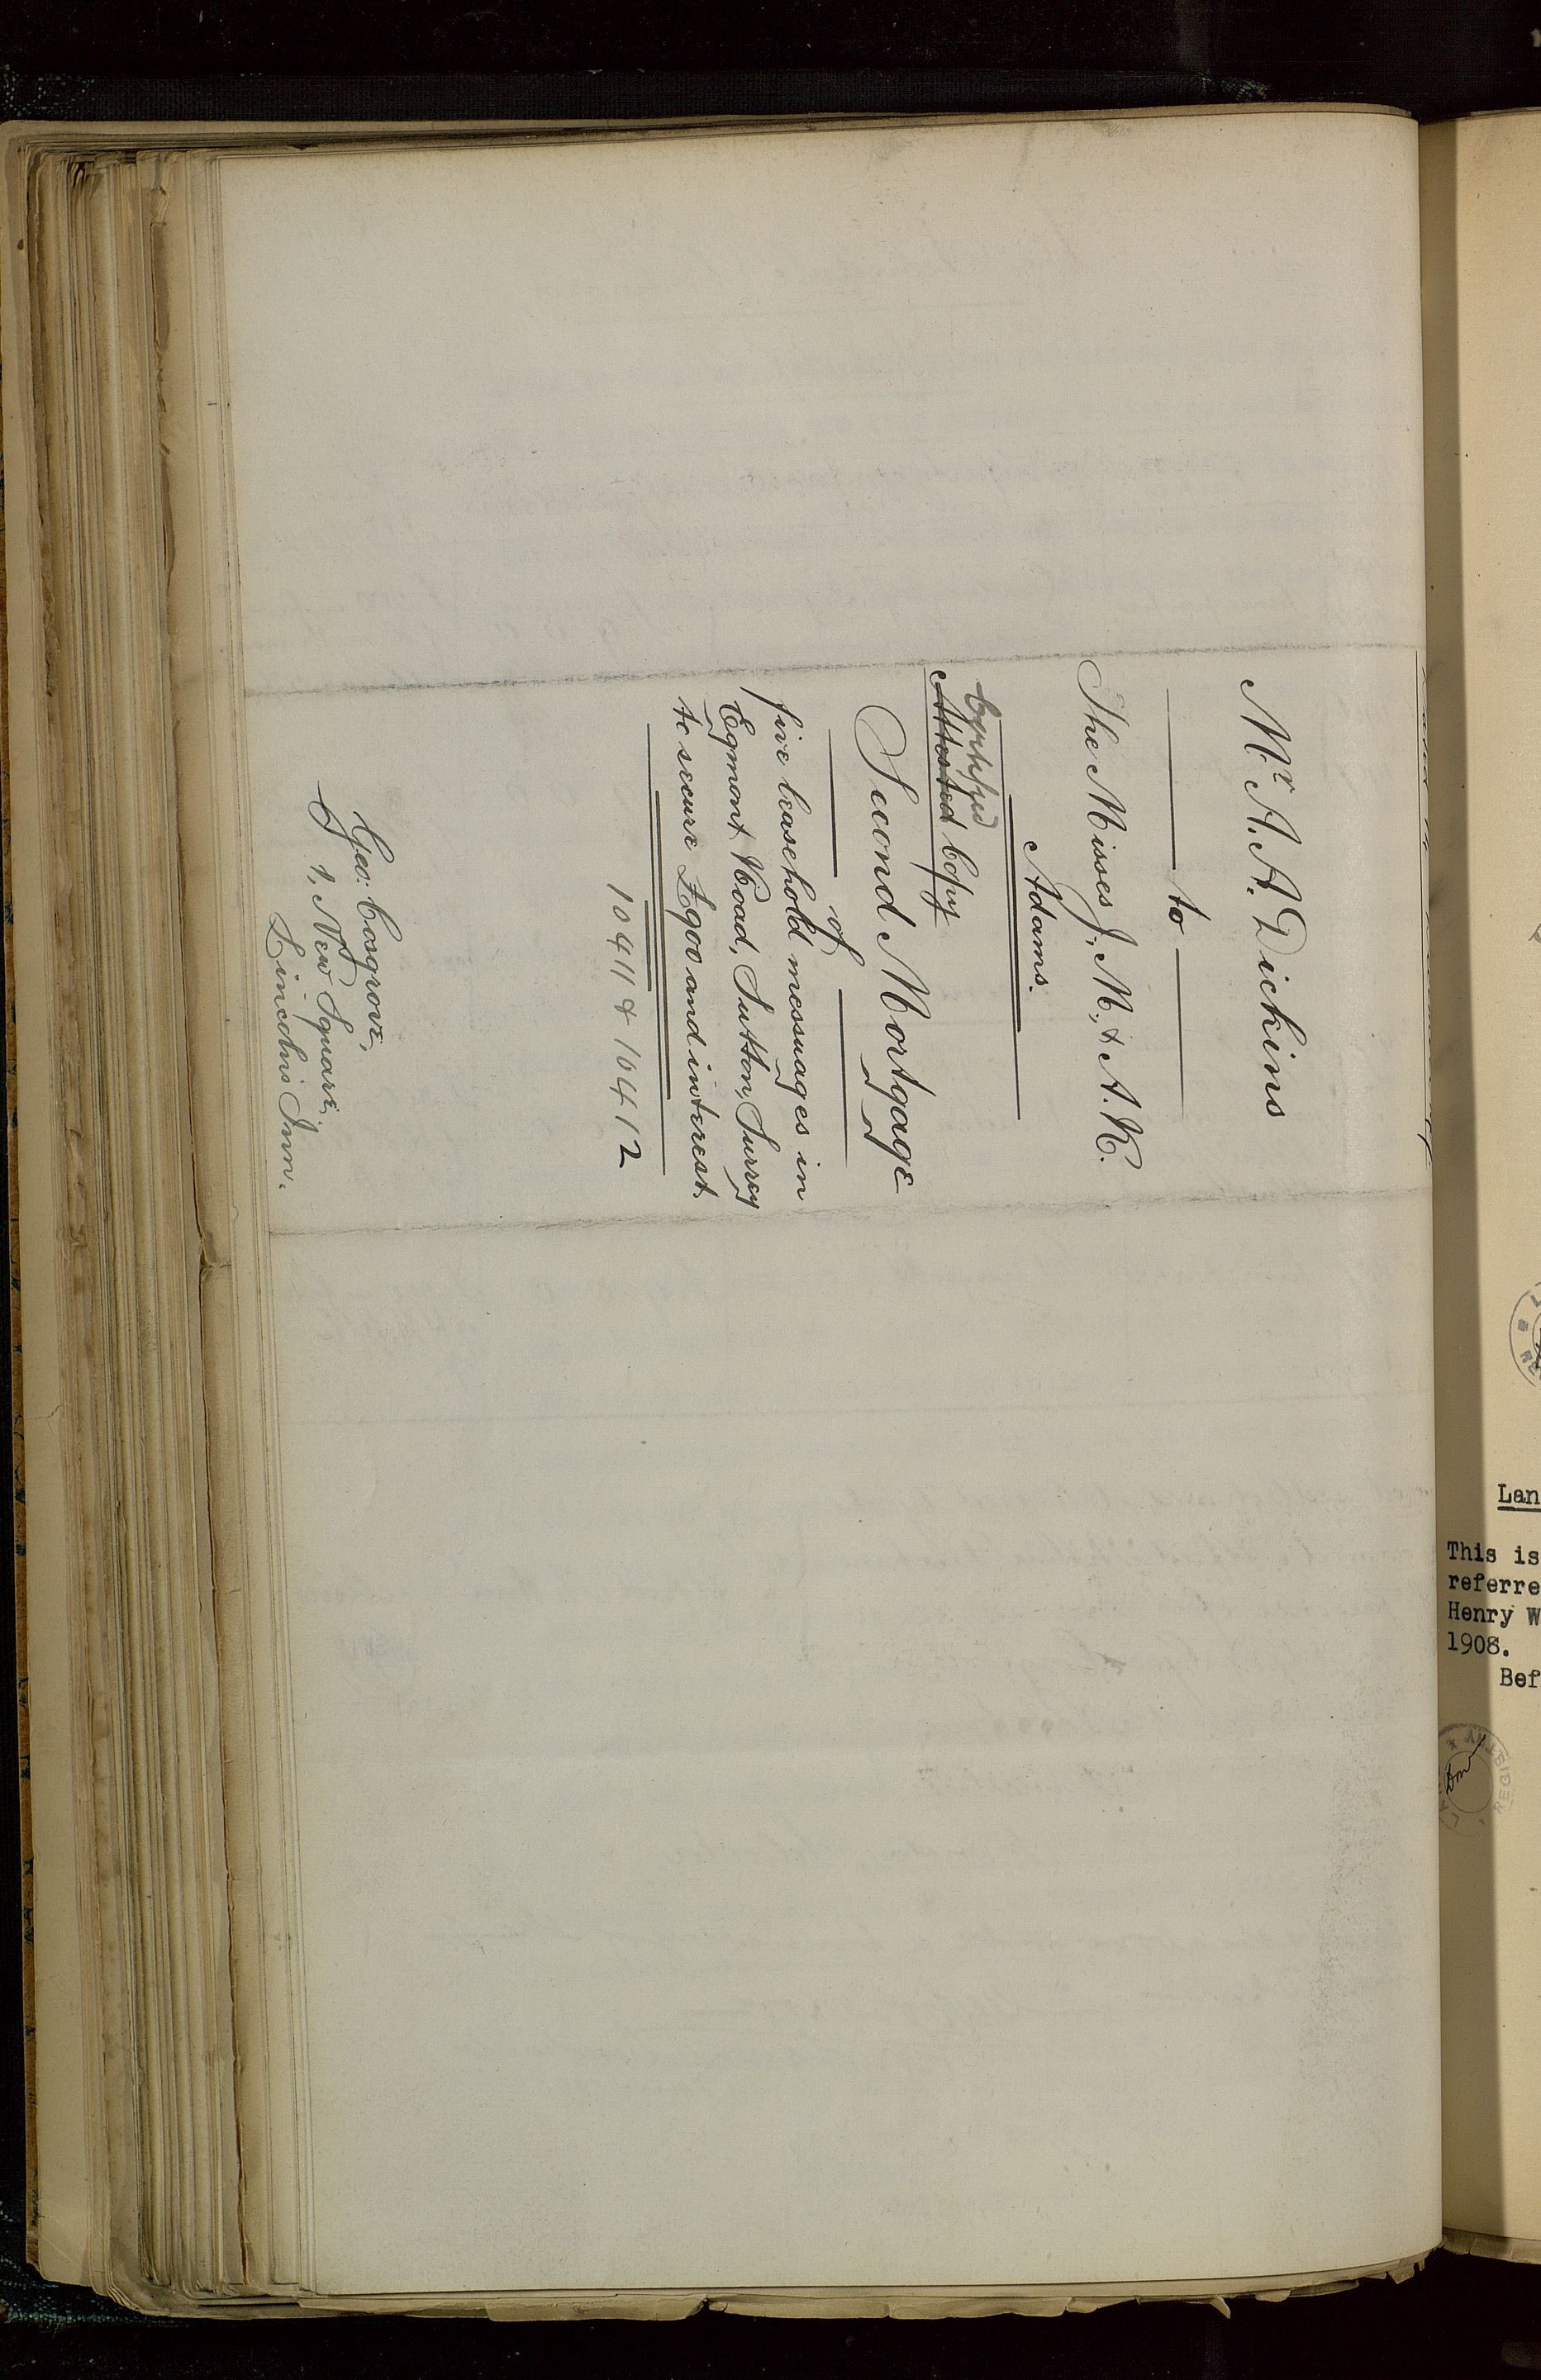 Mr. A. A. Dickins
to
The Misses J. M. & A. K.
Adams.
Certified
Attested Copy
Second Mortgage
of
five leasehold messuages in
Egmont Road, Sutton, Surrey
to secure £900 and interest.
10411 & 10412
Geo: Cosgrove,
1, New Square,
Lincolns Inn.
Lan
This is
referre
Henry W
1908.
Bef
REGISTRY